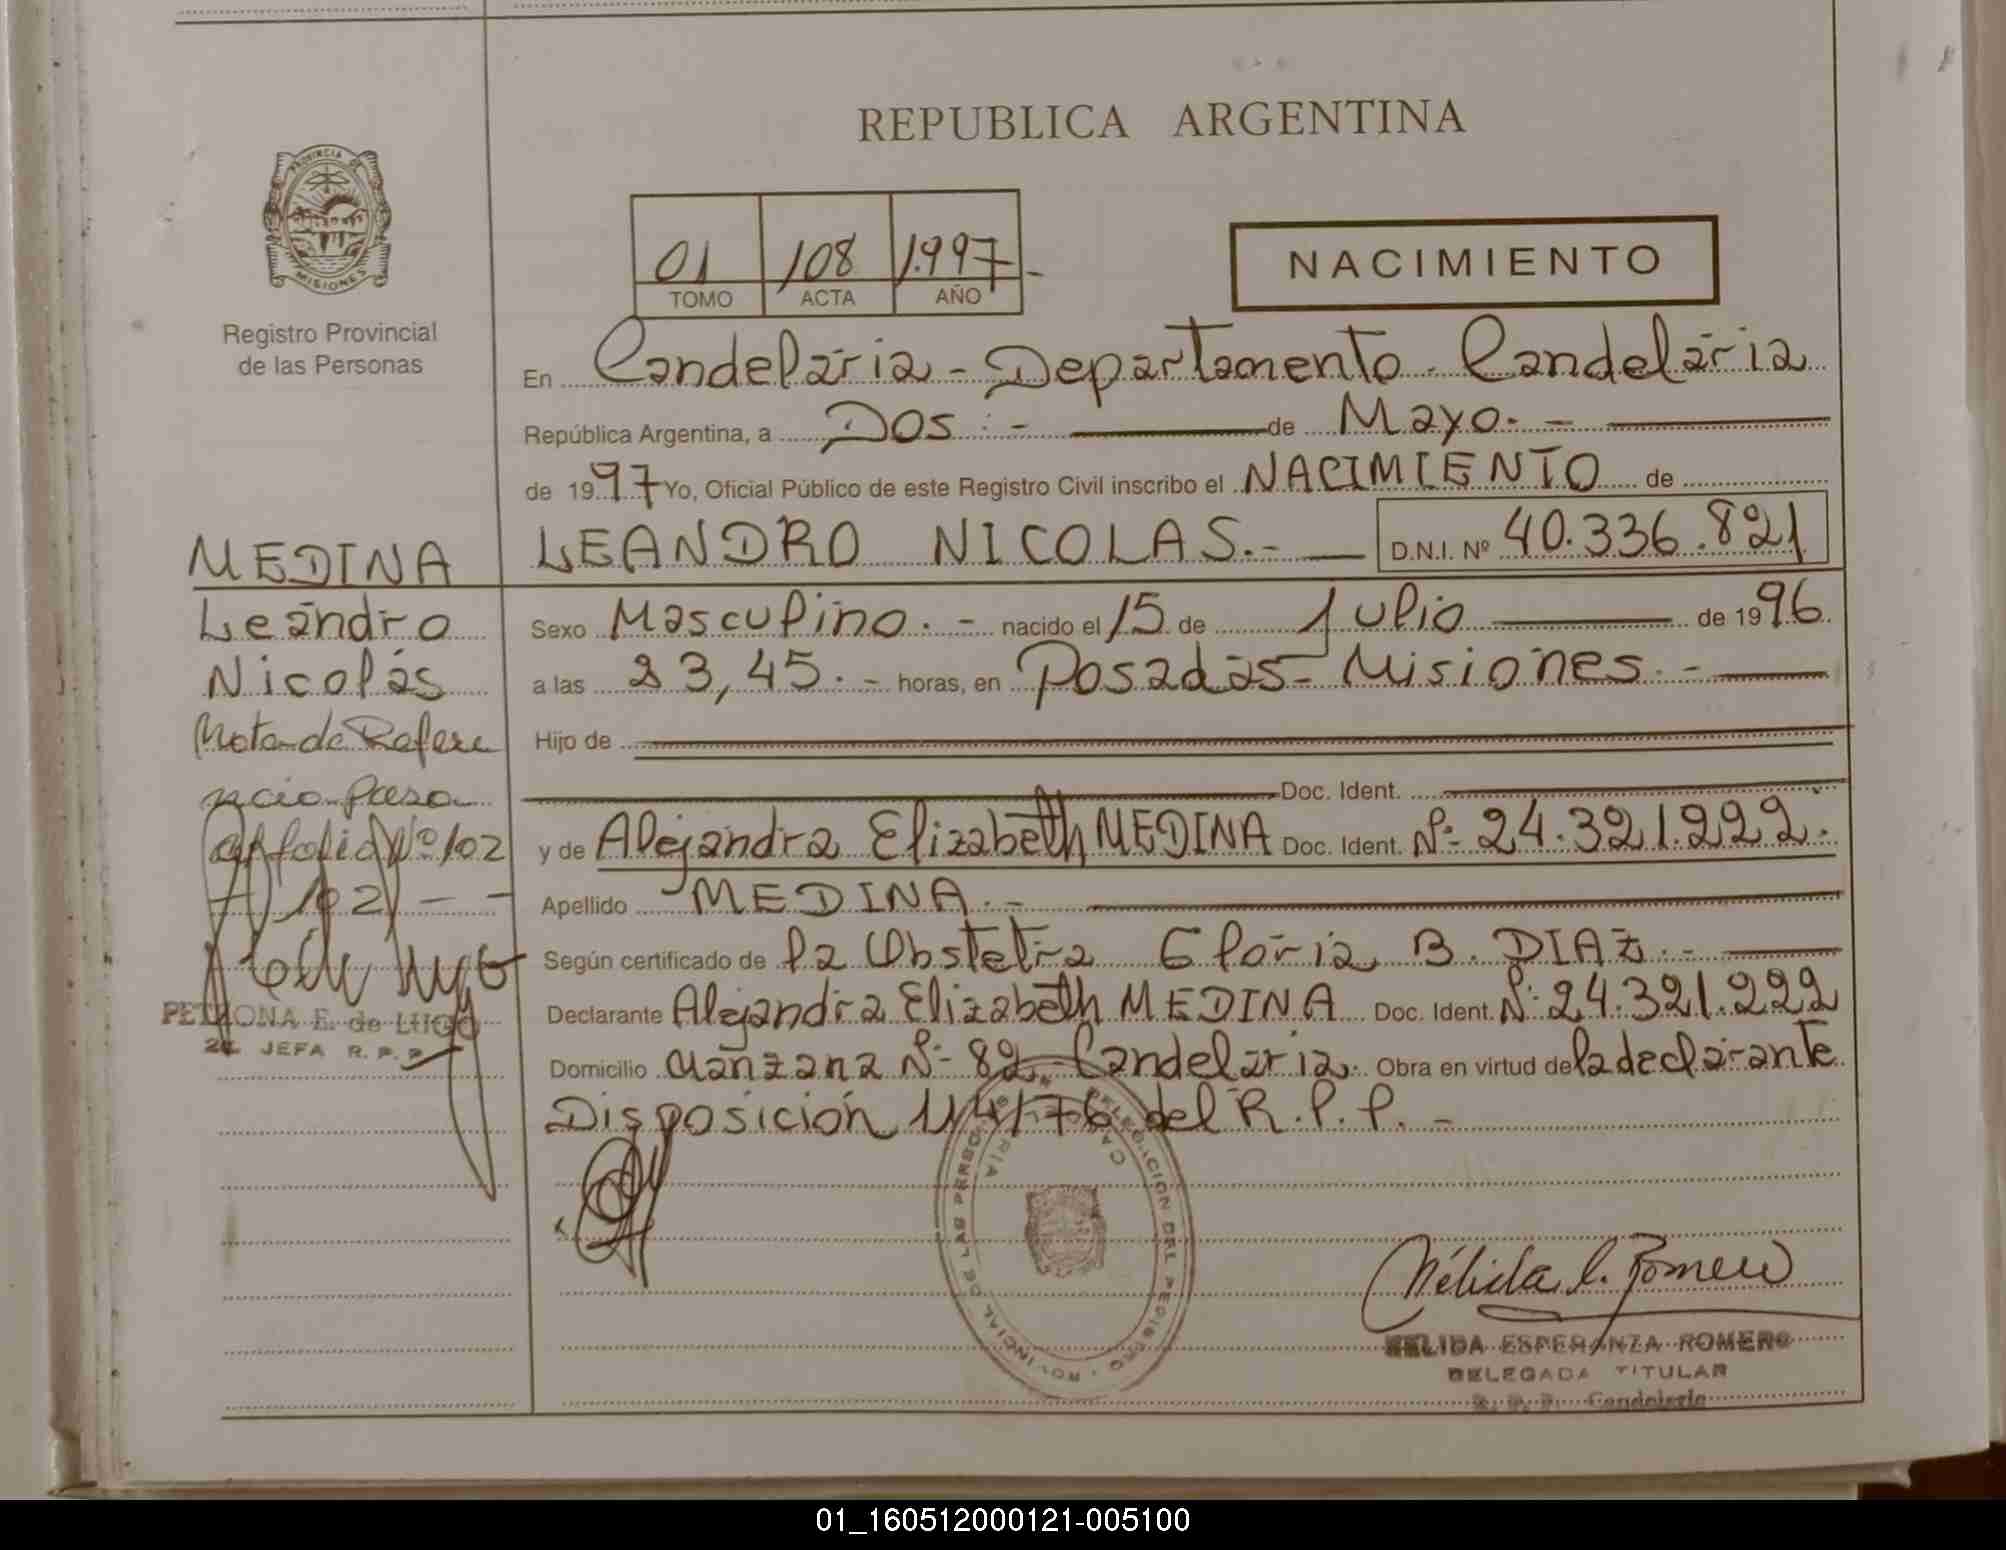 REPUBLICA ARGENTINA
PROVINCIA DE MISIONES
Registro Provincial
de las Personas
01 108 1.997
TOMO ACTA AÑO
NACIMIENTO
En Candelaria - Departamento Candelaria
República Argentina, a Dos - de Mayo. -
de 1997 Yo, Oficial Público de este Registro Civil inscribo el NACIMIENTO de
LEANDRO NICOLAS. - D.N.I. Nº 40.336.821
MEDINA
Leandro
Nicolás
Nota de Refere
ncia Pasa
al folio Nº 102
102 - -
PETRONA E. de LUGO
2a. JEFA R. P. P.
Sexo Masculino. - nacido el 15 de Julio de 1996
a las 23,45. - horas, en Posadas - Misiones. -
Hijo de
Doc. Ident.
y de Alejandra Elizabeth MEDINA Doc. Ident. Nº 24.321.222.
Apellido MEDINA. -
Según certificado de la Obstetra Gloria B. DIAZ. -
Declarante Alejandra Elizabeth MEDINA Doc. Ident. Nº 24.321.222
Domicilio Manzana Nº 82 - Candelaria. Obra en virtud de la declarante
Disposición 114/76 del R.P.P. -
DELEGACION DEL REGISTRO PROVINCIAL DE LAS PERSONAS
Nélida E. Romero
NELIDA ESPERANZA ROMERO
DELEGADA TITULAR
R. P. P. Candelaria
01_160512000121-005100